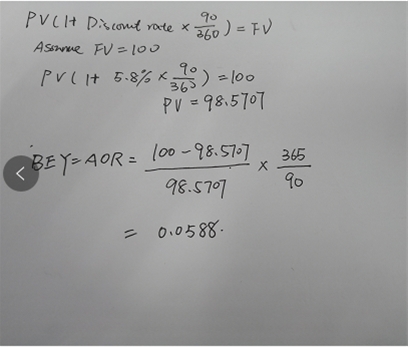 PV(1+ Discount rate × 90/360) = FV
Assume FV = 100
PV(1+ 5.8% × 90/360) = 100
PV = 98.5707
BEY = AOR = 100 - 98.5707/98.5707 × 365/90
= 0.0588.